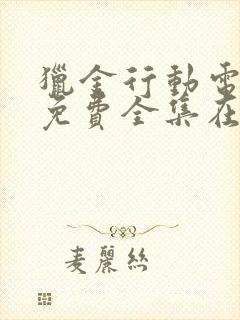 獵金行動電
免費全集在
麦麗絲